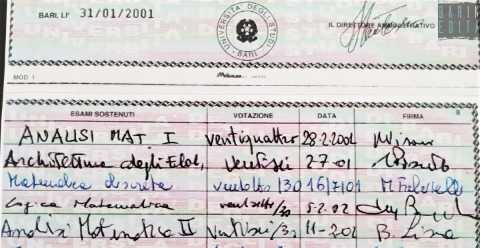 BARI, LI' 31/01/2001
UNIVERSITÀ DEGLI STUDI BARI
IL DIRETTORE AMMINISTRATIVO
MOD. 1
ESAMI SOSTENUTI VOTAZIONE DATA FIRMA
ANALISI MAT. I ventiquattro 28.2.2001
Architettura degli Elab. Ventisei 2-7-01
Matematica discreta ventotto/30 16/7/01 M.
Logica Matematica ventisette/30 5.2.02
Analisi Matematica II Ventisei/30 B.